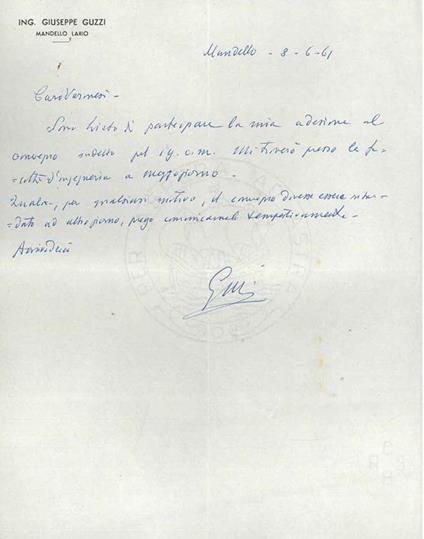 ING. GIUSEPPE GUZZI
MANDELLO LARIO
Mandello - 8-6-61
Cari Vermesi -
Sono lieto di partecipare la mia adesione al
convegno indetto pel 19. c.m. Mi troverò presso la fa-
-coltà d'ingegneria a mezzogiorno.
Qualora, per qualsiasi motivo, il convegno dovesse essere riman-
-dato ad altro giorno, prego comunicarmelo tempestivamente -
Arrivederci
Guzzi